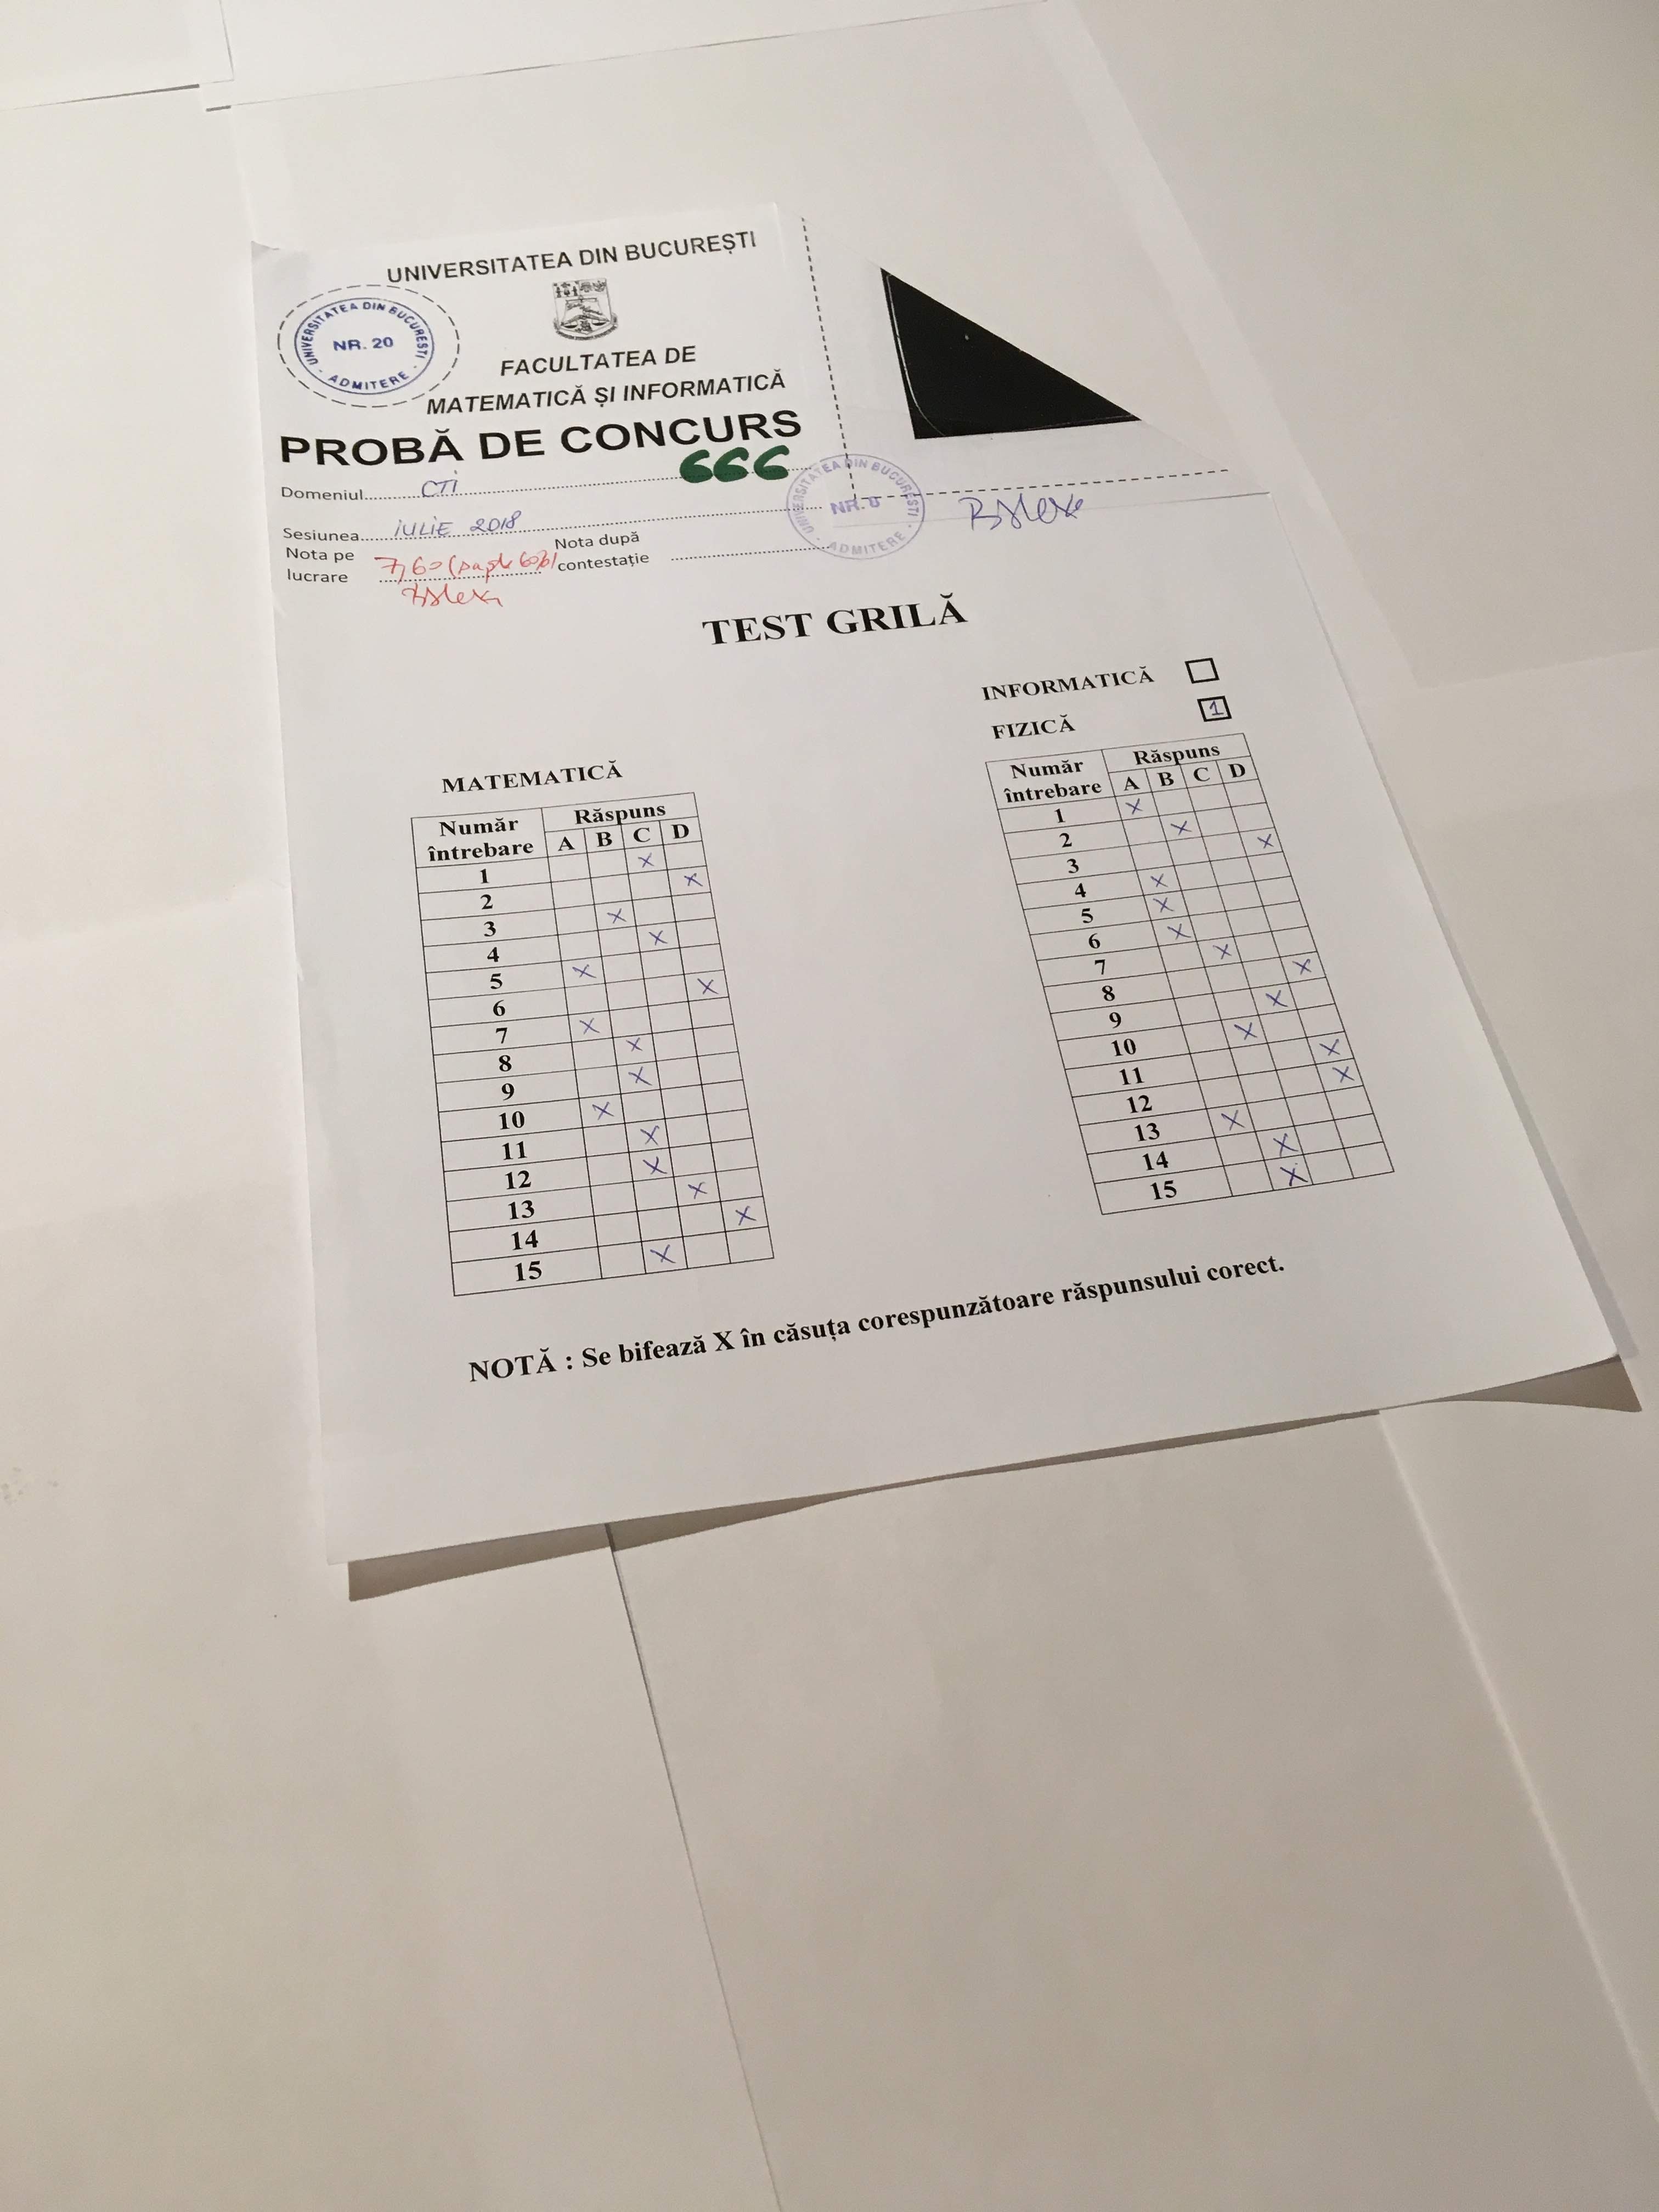 UNIVERSITATEA DIN BUCUREȘTI
UNIVERSITATEA DIN BUCUREȘTI
NR. 20
ADMITERE
FACULTATEA DE
MATEMATICĂ ȘI INFORMATICĂ
PROBĂ DE CONCURS
666
Domeniul CTI
Sesiunea IULIE 2018
Nota pe lucrare 7,60 (șapte 60%)
Nota după contestație
UNIVERSITATEA DIN BUCUREȘTI
NR. 8
ADMITERE
TEST GRILĂ
INFORMATICĂ
FIZICĂ 1
MATEMATICĂ
Număr întrebare Răspuns
A B C D
1 X
2 X
3 X
4 X
5 X
6 X
7 X
8 X
9 X
10 X
11 X
12 X
13 X
14 X
15 X
Număr întrebare Răspuns
A B C D
1 X
2 X
3 X
4 X
5 X
6 X
7 X
8 X
9 X
10 X
11 X
12 X
13 X
14 X
15 X
NOTĂ : Se bifează X în căsuța corespunzătoare răspunsului corect.